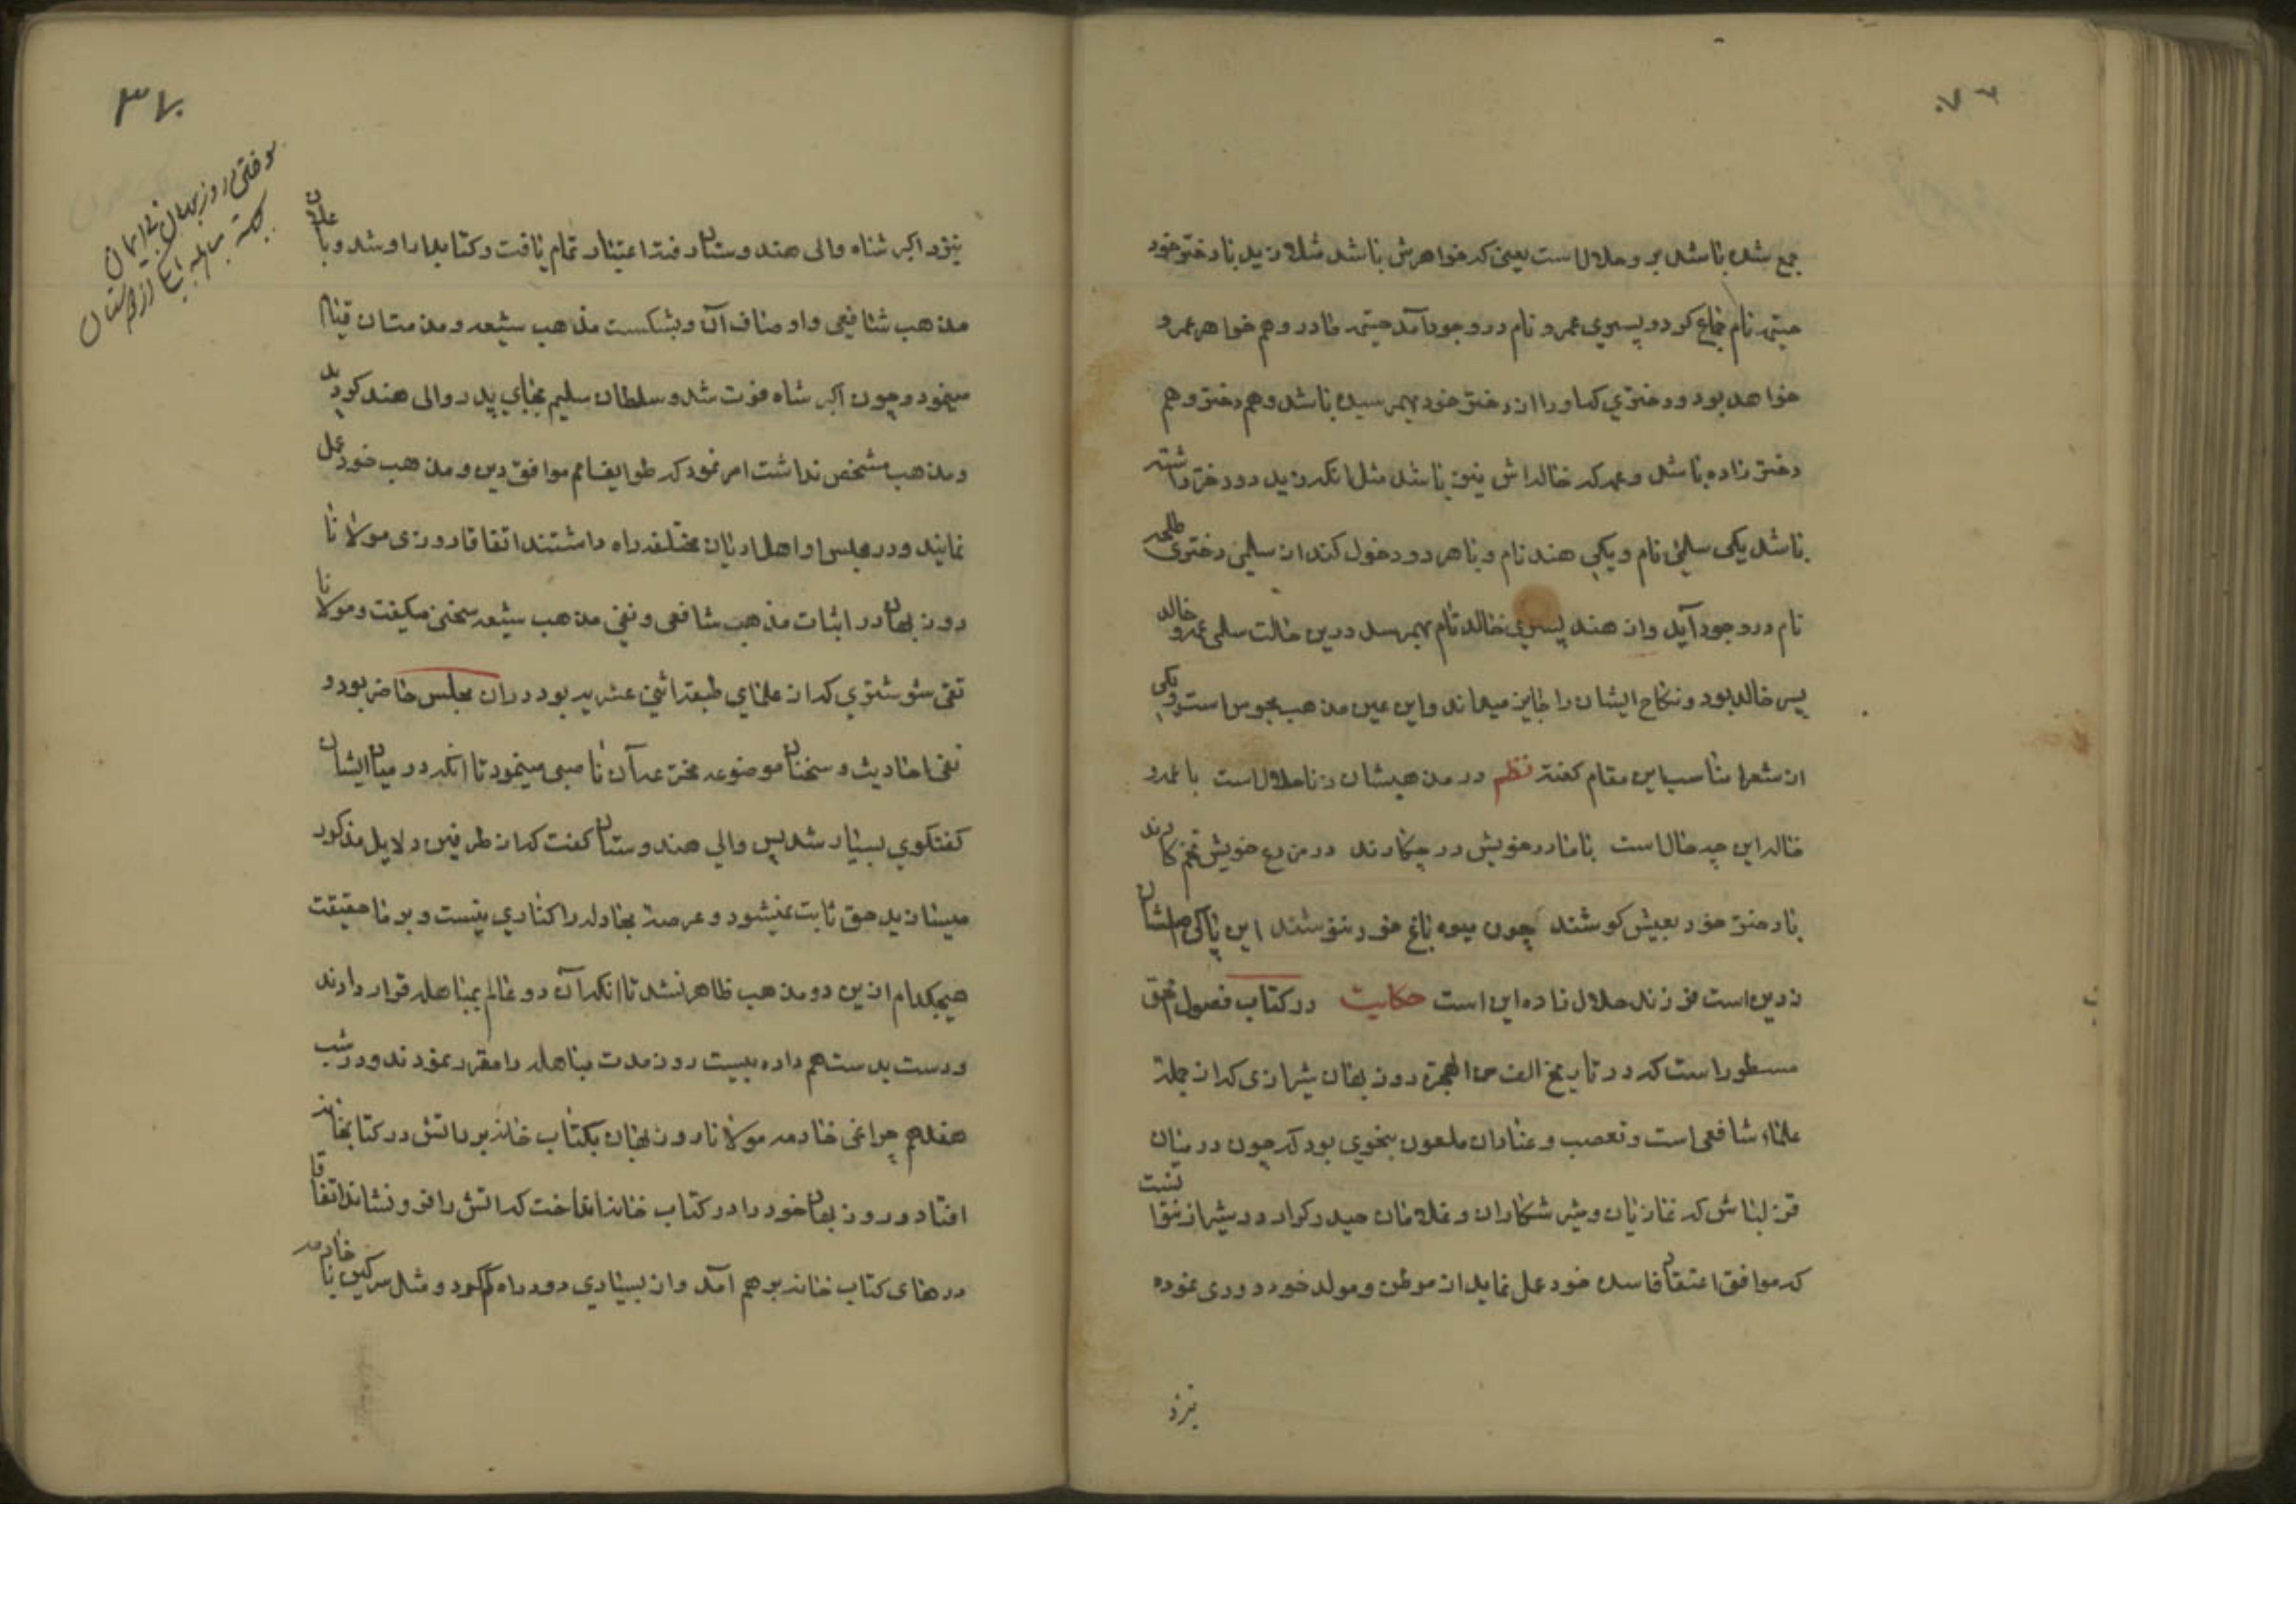 جمع شده باشد بر و حلال است یعنی که خواهرش باشد مثلا زید با دختر خود
نام جماع کرد و پسری عمرو نام در وجود آمد مادر و هم خواهر عمرو
خواهد بود و دختری که او را از دختر خود بهم رسیده باشد و هم دختر و هم
دختر زاده باشد و عمه که خاله اش نیز باشد مثل آنکه زید دو دختر داشته
باشد یکی سلمی نام و یکی هند نام و با هر دو دخول کند از سلمی دختری
نام در وجود آید و از هند پسری خالد نام بهم رسد درین حالت سلمی
پس خالد بود و نکاح ایشان را جایز میداند و این عین مذهب مجوس است و یکی
از شعرا مناسب این مقام گفته نظم در مذهبشان زنا حلال است با عمه و
خاله این چه حال است با مادر خویش در چکارند در مزرع خویش تخم کارند
با دختر خود بعیش کوشند چون میوه باغ خود فروشند این پاکی
زدین است فرزند حلال زاده این است حکایت در کتاب فصول
مسطور است که در تاریخ الف من الهجرة روزبهان شیرازی که از جمله
علماء شافعی است و تعصب و عناد آن ملعون بنحوی بود که چون در میان
قزلباش که غازیان و شکاران و غلامان حیدر کرار در شیراز
که موافق اعتقاد فاسده خود عمل نماید از موطن و مولد خود دوری نموده
نزد
٣٧
روزبهان بی ایمان
نزد اکبر شاه والی هندوستان رفته اعتبار تمام یافت و کتابدار او شد و
مذهب شافعی و اوصاف آن و بشکست مذهب شیعه و مذمتان قیام
مینمود و چون اکبر شاه فوت شد و سلطان سلیم بجای پدر والی هند گردید
و مذهب مشخص نداشت امر نمود که طوایف امم موافق دین و مذهب خود عمل
نمایند و در مجلس او اهل ادیان مختلفه راه داشتند اتفاقا روزی مولانا
روزبهان در اثبات مذهب شافعی و نفی مذهب شیعه سخنی میگفت و مولانا
تقی شوشتری که از علمای طبقه اثنی عشریه بود در ان مجلس حاضر بود و
نفی احادیث و سخنان موضوعه مخترعه آن ناصبی مینمود تا آنکه در میان ایشان
گفتگوی بسیار شد پس والی هندوستان گفت که از طرفین دلایل مذکور
میسازید حق ثابت نمیشود و عرصه مجادله را کناری نیست و بر ما حقیقت
هیچکدام ازین دو مذهب ظاهر نشد تا آنکه آن دو عالم بمباهله قرار دادند
و دست بدست هم داده بیست روز مدت مباهله را مقرر نمودند و در شب
هفدهم چراغی خادمه مولانا روزبهان بکتاب خانه برد آتش در کتابخانه
افتاد و روزبهان خود را در کتاب خانه انداخت که آتش را فرو نشاند اتفاقا
درهای کتاب خانه بر هم آمد و از بسیاری دود راه گم کرد و مثل سرگین با خادمه